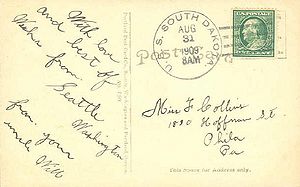 With love
and best of
Wishes from
Seattle
Washington
from your
uncle Will
U. S. SOUTH DAKOTA
AUG
31
1909
8AM
Post
Miss F Collins
1820 Hoffman St
Phila
Pa
This Space for Address only.